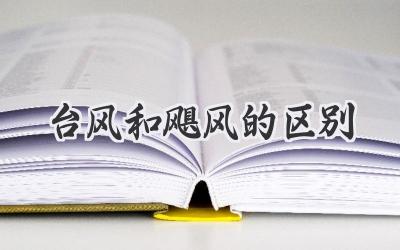 台风和飓风的区别